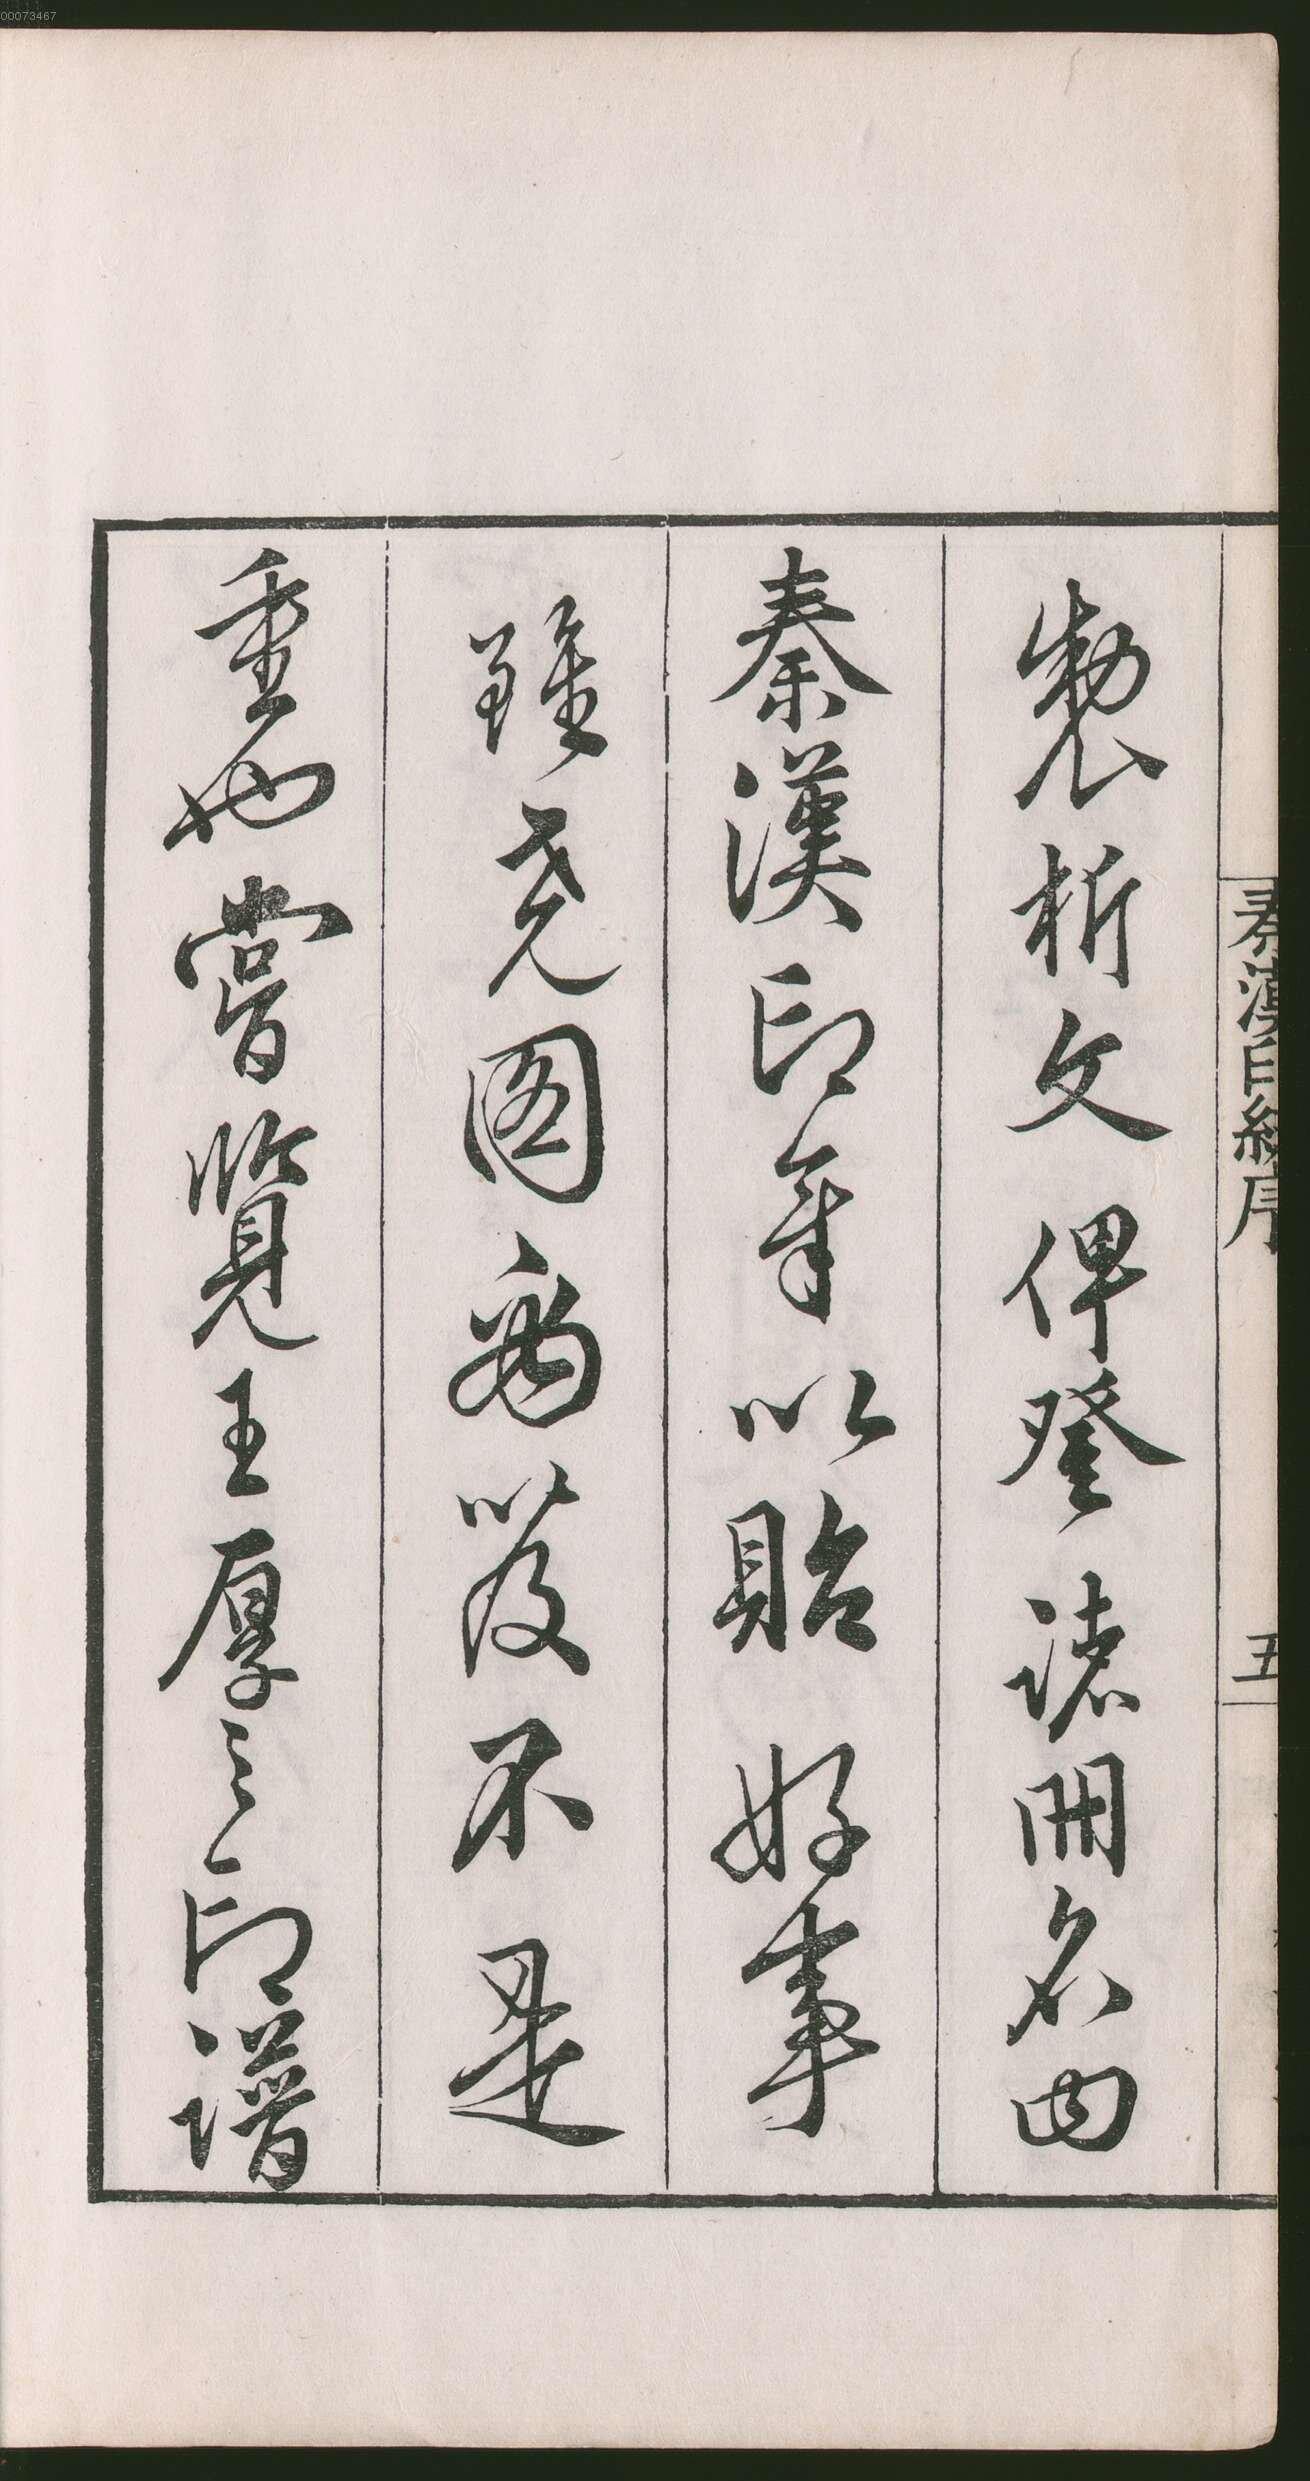 00073467
秦漢印統序
五
製析文俾登諸冊名曰
秦漢印章以貽好事
雖堯圖禹笈不是
重也嘗覽王厚之印譜